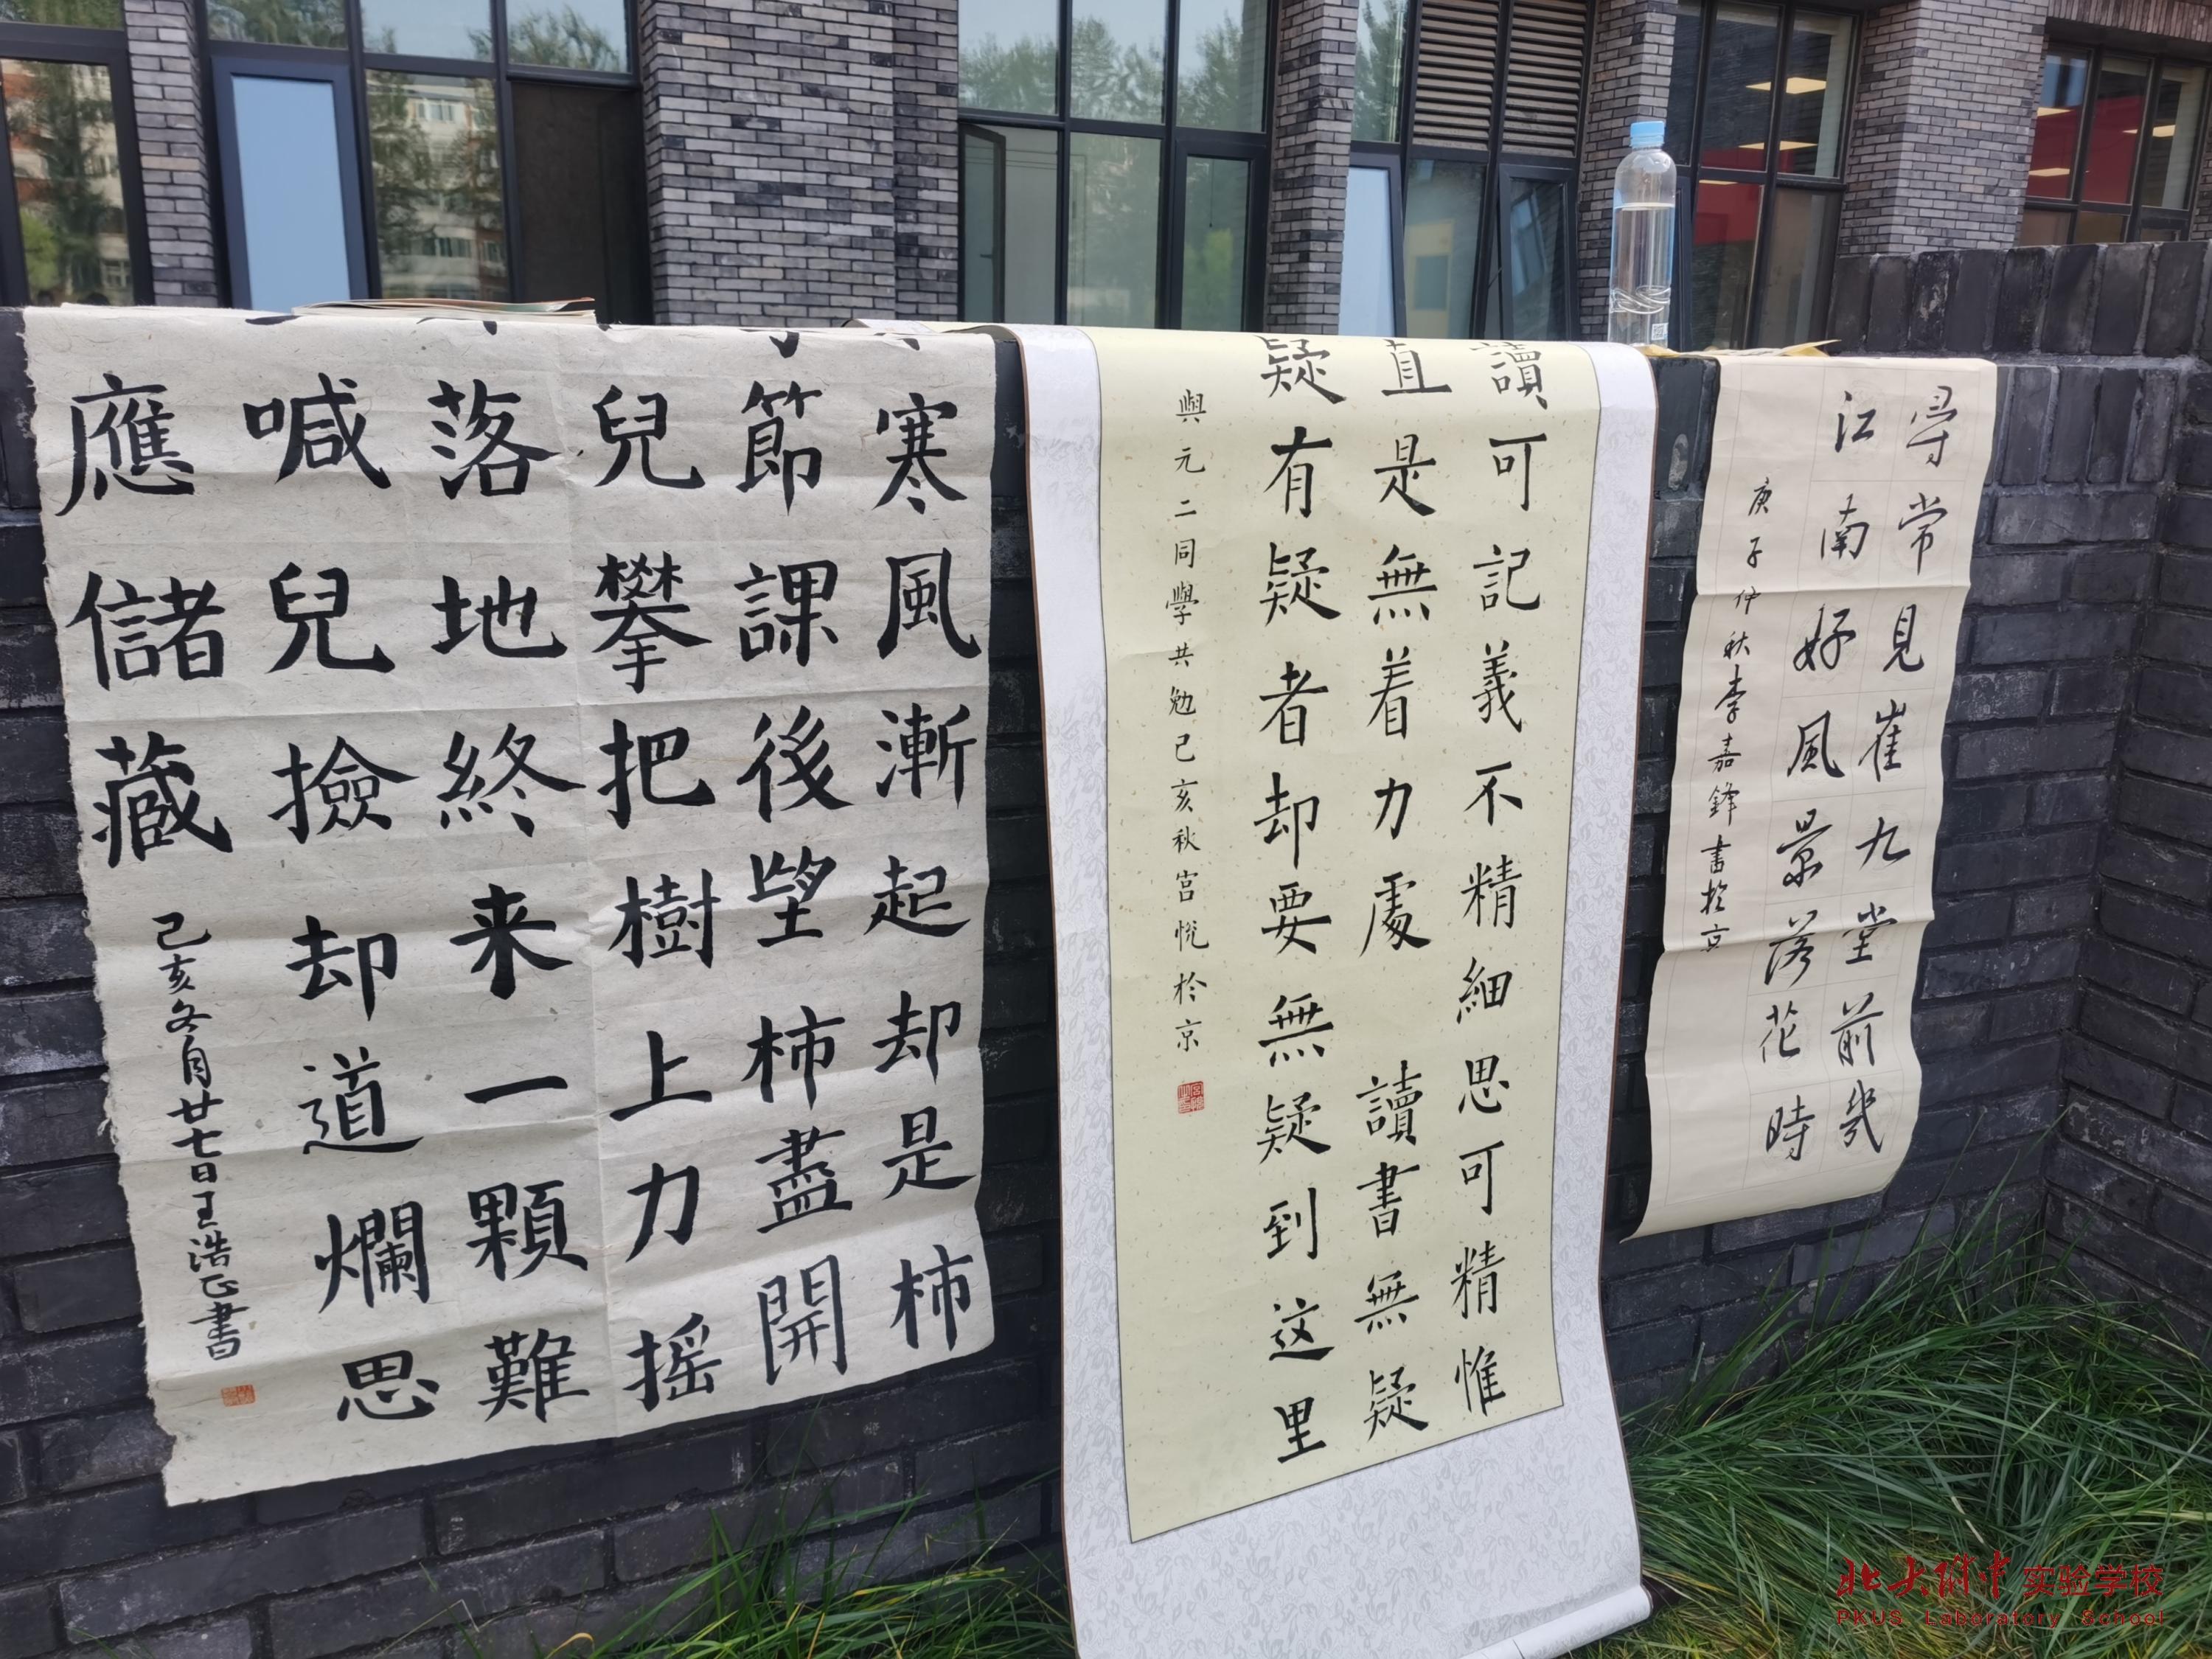 寒風漸起却是柿
節課後望柿盡開
兒攀把樹上力摇
落地終来一顆難
喊兒撿却道爛思
應儲藏
己亥冬月廿七日王浩正書
讀可記義不精細思可精惟
直是無着力處 讀書無疑
疑有疑者却要無疑到这里
與元二同學共勉己亥秋宫悦於京
尋常見崔九堂前幾
江南好風景落花時
庚子仲秋李嘉鋒書於京
北大附中实验学校
PKUS Laboratory School